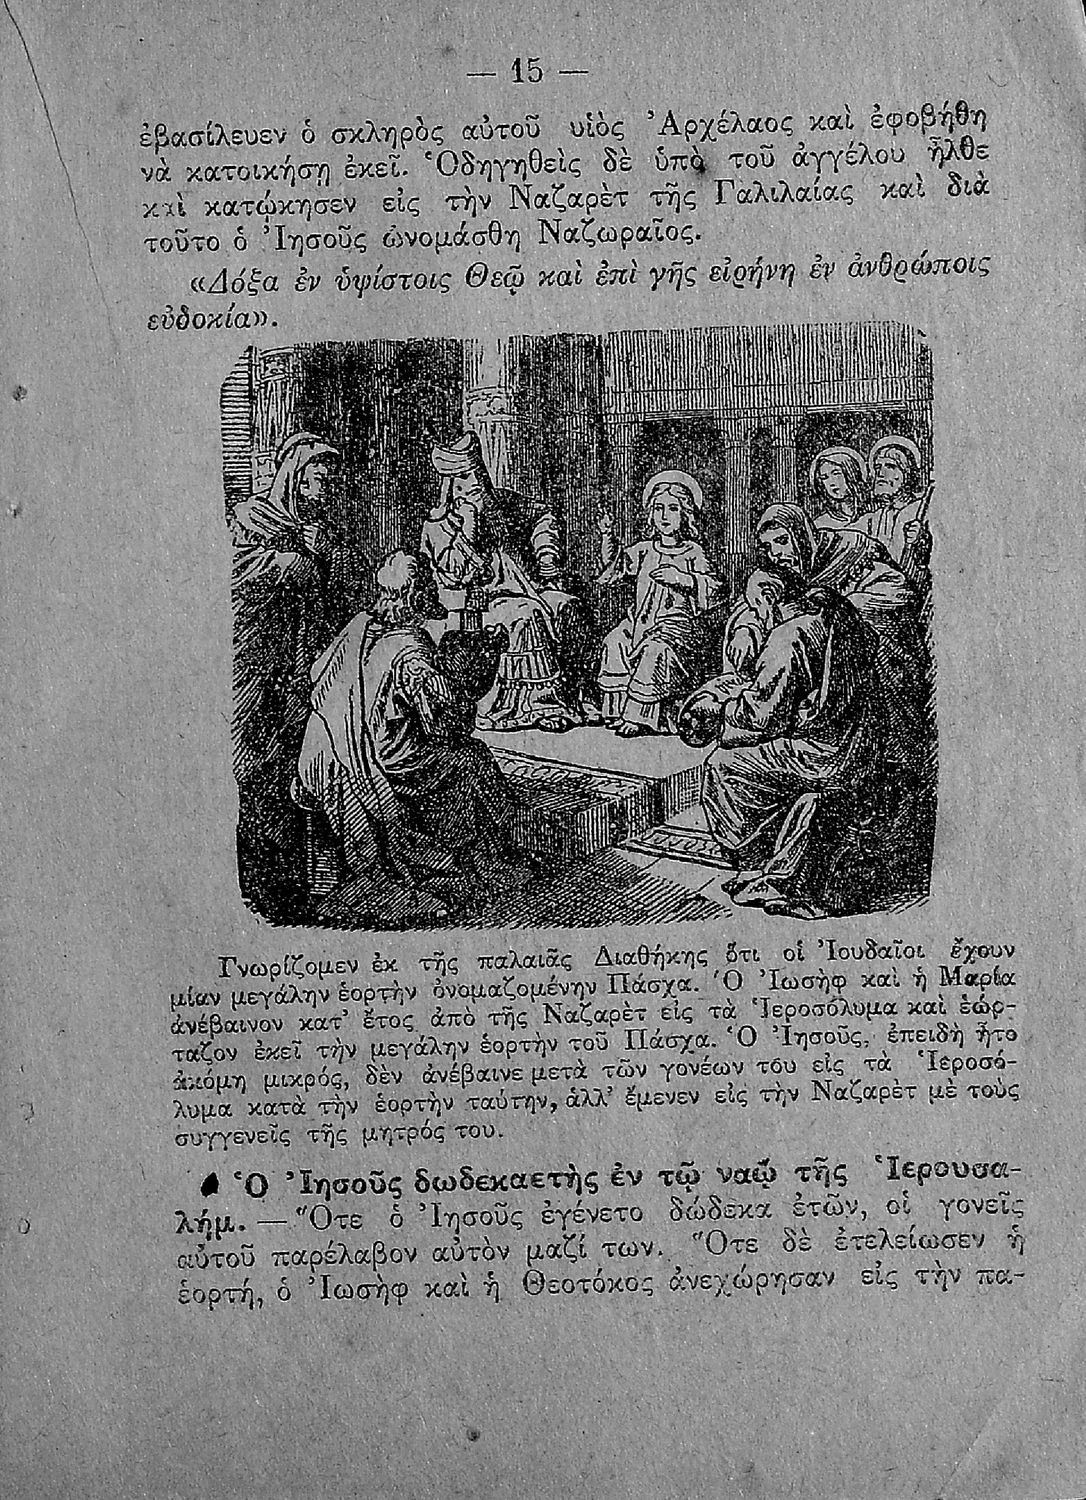 — 15 —
ἐβασίλευεν ὁ σκληρὸς αὐτοῦ υἱὸς Ἀρχέλαος καὶ ἐφοβήθη
νὰ κατοικήσῃ ἐκεῖ. Ὁδηγηθεὶς δὲ ὑπὸ τοῦ ἀγγέλου ἦλθε
καὶ κατῴκησεν εἰς τὴν Ναζαρὲτ τῆς Γαλιλαίας καὶ διὰ
τοῦτο ὁ Ἰησοῦς ὠνομάσθη Ναζωραῖος.
«Δόξα ἐν ὑψίστοις Θεῷ καὶ ἐπὶ γῆς εἰρήνη ἐν ἀνθρώποις
εὐδοκία».
Γνωρίζομεν ἐκ τῆς παλαιᾶς Διαθήκης ὅτι οἱ Ἰουδαῖοι ἔχουν
μίαν μεγάλην ἑορτὴν ὀνομαζομένην Πάσχα. Ὁ Ἰωσὴφ καὶ ἡ Μαρία
ἀνέβαινον κατ’ ἔτος ἀπὸ τῆς Ναζαρὲτ εἰς τὰ Ἱεροσόλυμα καὶ ἑώρ-
ταζον ἐκεῖ τὴν μεγάλην ἑορτὴν τοῦ Πάσχα. Ὁ Ἰησοῦς, ἐπειδὴ ἦτο
ἀκόμη μικρός, δὲν ἀνέβαινε μετὰ τῶν γονέων του εἰς τὰ Ἱεροσό-
λυμα κατὰ τὴν ἑορτὴν ταύτην, ἀλλ’ ἔμενεν εἰς τὴν Ναζαρὲτ μὲ τοὺς
συγγενεῖς τῆς μητρός του.
Ὁ Ἰησοῦς δωδεκαετὴς ἐν τῷ ναῷ τῆς Ἱερουσα-
λήμ. — Ὅτε ὁ Ἰησοῦς ἐγένετο δώδεκα ἐτῶν, οἱ γονεῖς
αὐτοῦ παρέλαβον αὐτὸν μαζί των. Ὅτε δὲ ἐτελείωσεν ἡ
ἑορτή, ὁ Ἰωσὴφ καὶ ἡ Θεοτόκος ἀνεχώρησαν εἰς τὴν πα-